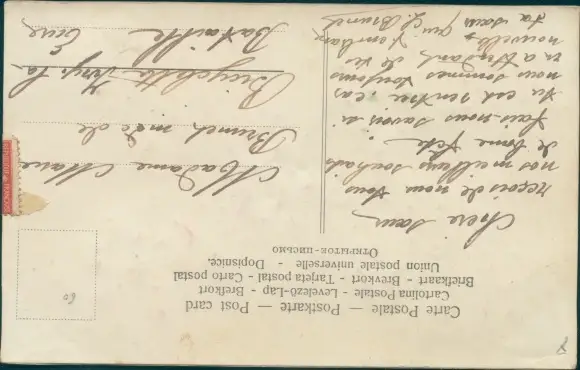 Carte Postale — Postkarte — Post card
Cartolina Postale - Levelező-Lap - Brefkort
Briefkaart - Brevkort - Tarjeta postal - Carto postal
Union postale universelle - Dopisnice.
Открыток-письмо
Chère sœur
reçois de nous tous
nos meilleurs souhaits
de bonne fête
fais-nous savoir si
tu est rentrée, car
nous sommes toujours
en attendant de tes
nouvelles
ta sœur qui L. Brunet
Madame Marie
Brunet, mde de
Bicyclette
Bataille
Eure
60
8